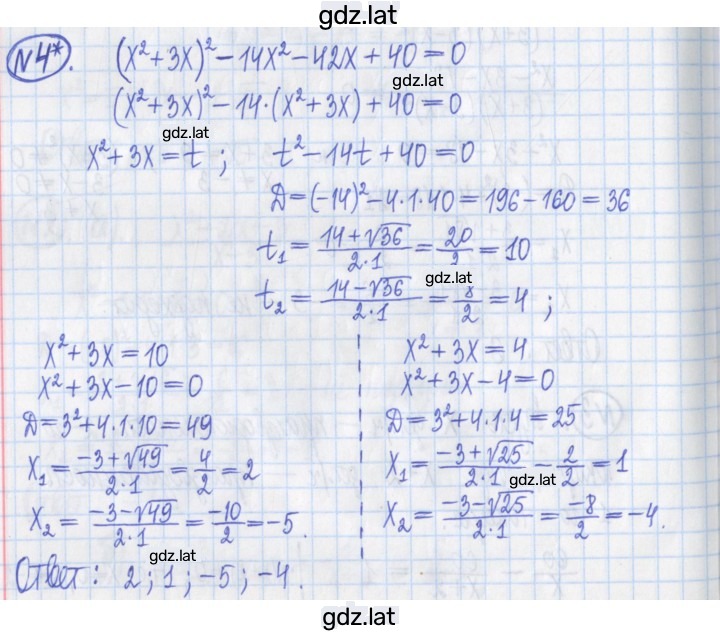 gdz.lat
№4*. (x²+3x)²-14x²-42x+40=0
gdz.lat
(x²+3x)²-14·(x²+3x)+40=0
gdz.lat
x²+3x=t; t²-14t+40=0
D=(-14)²-4·1·40=196-160=36
t₁=(14+√36)/(2·1)=20/2=10
gdz.lat
t₂=(14-√36)/(2·1)=8/2=4;
x²+3x=10
x²+3x-10=0
D=3²+4·1·10=49
x₁=(-3+√49)/(2·1)=4/2=2
x₂=(-3-√49)/(2·1)=-10/2=-5.
x²+3x=4
x²+3x-4=0
D=3²+4·1·4=25
x₁=(-3+√25)/(2·1)-2/2=1
gdz.lat
x₂=(-3-√25)/(2·1)=-8/2=-4.
gdz.lat
Ответ: 2; 1; -5; -4.
gdz.lat